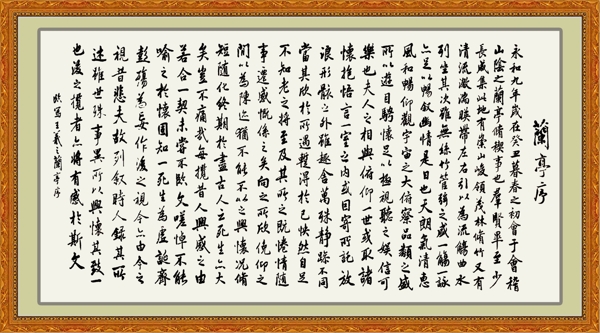 蘭亭序
永和九年歲在癸丑暮春之初會于會稽
山陰之蘭亭脩稧事也羣賢畢至少
長咸集此地有崇山峻領茂林脩竹又有
清流激湍暎帶左右引以為流觴曲水
列坐其次雖無絲竹管弦之盛一觴一詠
亦足以暢敘幽情是日也天朗氣清惠
風和暢仰觀宇宙之大俯察品類之盛
所以遊目騁懷足以極視聽之娛信可
樂也夫人之相與俯仰一世或取諸
懷抱悟言一室之內或因寄所託放
浪形骸之外雖趣舍萬殊靜躁不同
當其欣於所遇蹔得於己怏然自足
不知老之將至及其所之既惓情隨
事遷感慨係之矣向之所欣俛仰之
閒以為陳迹猶不能不以之興懷況脩
短隨化終期於盡古人云死生亦大
矣豈不痛哉每攬昔人興感之由
若合一契未嘗不臨文嗟悼不能
喻之於懷固知一死生為虛誕齊
彭殤為妄作後之視今亦由今之
視昔悲夫故列敘時人錄其所
述雖世殊事異所以興懷其致一
也後之攬者亦將有感於斯文
臨寫王羲之蘭亭序